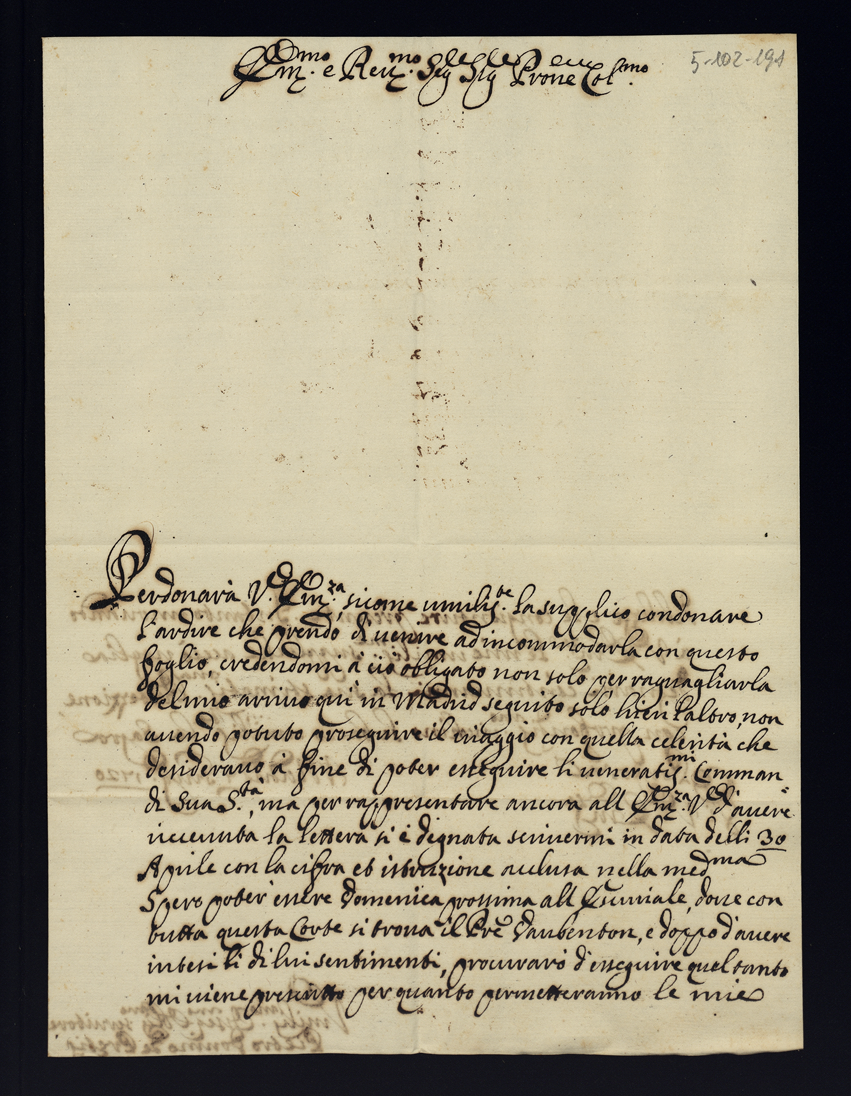 Em.mo e Rev.mo Sig.re Sig.re Prone Col.mo
5-102-191
Perdonarà V.ra Em.za, sicome umilis.te la supplico condonare
l'ardire che prendo di venire ad incommodarla con questo
foglio, credendomi à ciò obligato non solo per raguagliarla
del mio arrivo qui in Madrid seguito solo hieri l'altro, non
avendo potuto proseguire il viaggio con quella celerità che
desideravo à fine di poter esseguire li veneratis.mi Comman
di Sua S.tà, ma per rappresentare ancora all Em.za V.ra d'avere
ricevuta la lettera si è degnata scrivermi in data delli 30
Aprile con la cifra et istruzione acclusa nella med.ma
Spero poter essere Domenica prossima all Escuriale, dove con
tutta questa Corte si trova il Prê Daubenton, e doppo d'avere
intesi li di lui sentimenti, procurarò d'esseguire quel tanto
mi viene prescritto per quanto permetteranno le mie